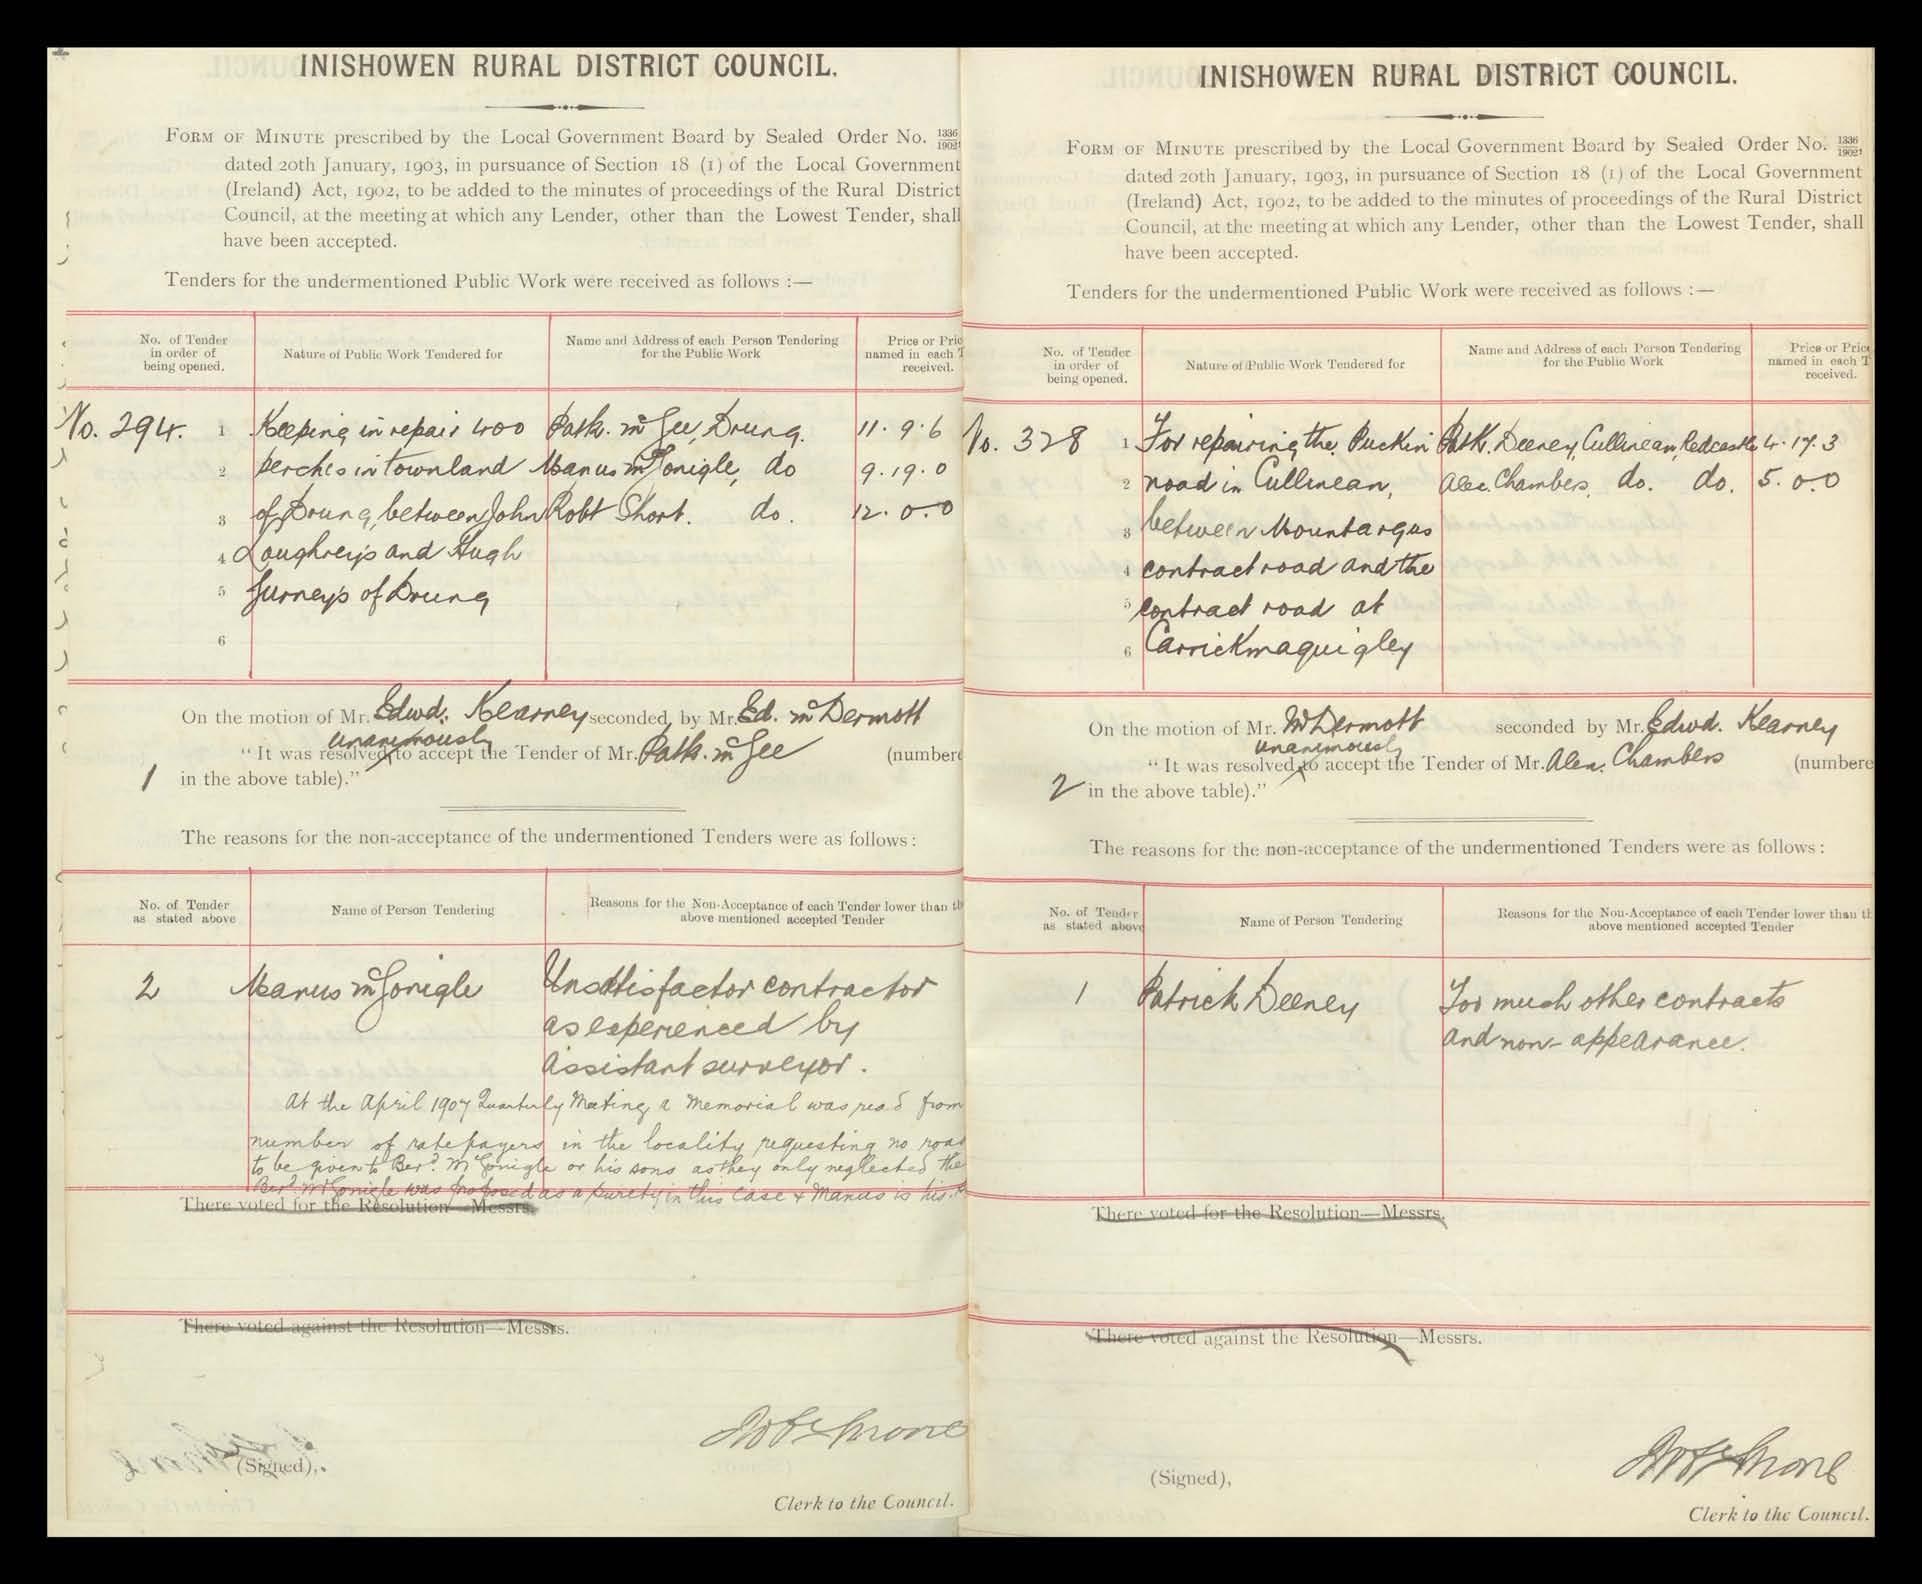 INISHOWEN RURAL DISTRICT COUNCIL.
FORM OF MINUTE prescribed by the Local Government Board by Sealed Order No. 1336/1902,
dated 20th January, 1903, in pursuance of Section 18 (1) of the Local Government
(Ireland) Act, 1902, to be added to the minutes of proceedings of the Rural District
Council, at the meeting at which any Lender, other than the Lowest Tender, shall
have been accepted.
Tenders for the undermentioned Public Work were received as follows :—
No. of Tender in order of being opened.
Nature of Public Work Tendered for
Name and Address of each Person Tendering for the Public Work
Price or Pric
named in each T
received.
No. 294. 1 Keeping in repair 400 Patk. McGee, Drung. 11. 9. 6
2 perches in townland Manus McGonigle, do 9. 19. 0
3 of Drung, between John Robt Short. do. 12. 0. 0
4 Loughrey's and Hugh
5 Furney's of Drung
6
On the motion of Mr. Edwd. Kearney seconded by Mr. Ed. McDermott
unanimously
"It was resolved to accept the Tender of Mr. Patk. McGee (numbere
1 in the above table)."
The reasons for the non-acceptance of the undermentioned Tenders were as follows :
No. of Tender as stated above
Name of Person Tendering
Reasons for the Non-Acceptance of each Tender lower than th
above mentioned accepted Tender
2 Manus McGonigle Unsatisfactor contractor
as experienced by
assistant surveyor.
At the April 1907 Quarterly Meeting a memorial was read from
number of ratepayers in the locality requesting no road
to be given to Berd. McGonigle or his sons as they only neglected the
Berd. McGonigle was proposed as a surety in this case & Manus is his
There voted for the Resolution—Messrs.
There voted against the Resolution—Messrs.
(Signed),
Clerk to the Council.
INISHOWEN RURAL DISTRICT COUNCIL.
FORM OF MINUTE prescribed by the Local Government Board by Sealed Order No. 1336/1902,
dated 20th January, 1903, in pursuance of Section 18 (1) of the Local Government
(Ireland) Act, 1902, to be added to the minutes of proceedings of the Rural District
Council, at the meeting at which any Lender, other than the Lowest Tender, shall
have been accepted.
Tenders for the undermentioned Public Work were received as follows :—
No. of Tender in order of being opened.
Nature of Public Work Tendered for
Name and Address of each Person Tendering for the Public Work
Price or Price
named in each T
received.
No. 328 1 For repairing the Puckin Patk. Deeney, Cullinean, Redcastle 4. 17. 3
2 road in Cullinean, Alex. Chambers, do. do. 5. 0. 0
3 between Mountargus
4 contract road and the
5 contract road at
6 Carrickmaquigley
On the motion of Mr. McDermott seconded by Mr. Edwd. Kearney
unanimously
"It was resolved to accept the Tender of Mr. Alex. Chambers (numbere
2 in the above table)."
The reasons for the non-acceptance of the undermentioned Tenders were as follows :
No. of Tender as stated above
Name of Person Tendering
Reasons for the Non-Acceptance of each Tender lower than th
above mentioned accepted Tender
1 Patrick Deeney Too much other contracts
and non-appearance.
There voted for the Resolution—Messrs.
There voted against the Resolution—Messrs.
(Signed),
Clerk to the Council.